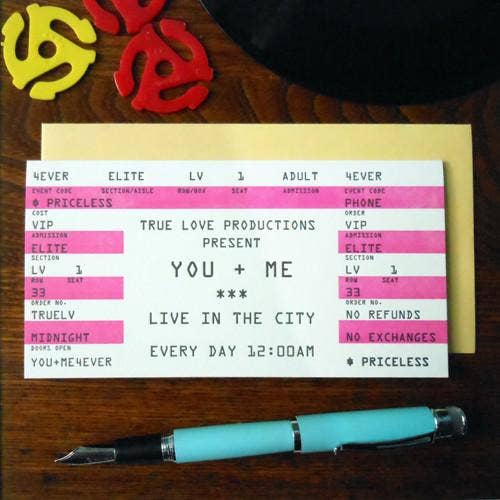 4EVER ELITE LV 1 ADULT 4EVER
EVENT CODE SECTION/AISLE ROW/BOX SEAT ADMISSION EVENT CODE
$ PRICELESS PHONE
COST ORDER
VIP TRUE LOVE PRODUCTIONS VIP
ADMISSION PRESENT ADMISSION
ELITE ELITE
SECTION YOU + ME SECTION
LV 1 LV 1
ROW SEAT *** ROW SEAT
33 33
ORDER NO. ORDER NO.
TRUELV LIVE IN THE CITY NO REFUNDS
MIDNIGHT NO EXCHANGES
DOORS OPEN EVERY DAY 12:00AM
YOU+ME4EVER $ PRICELESS